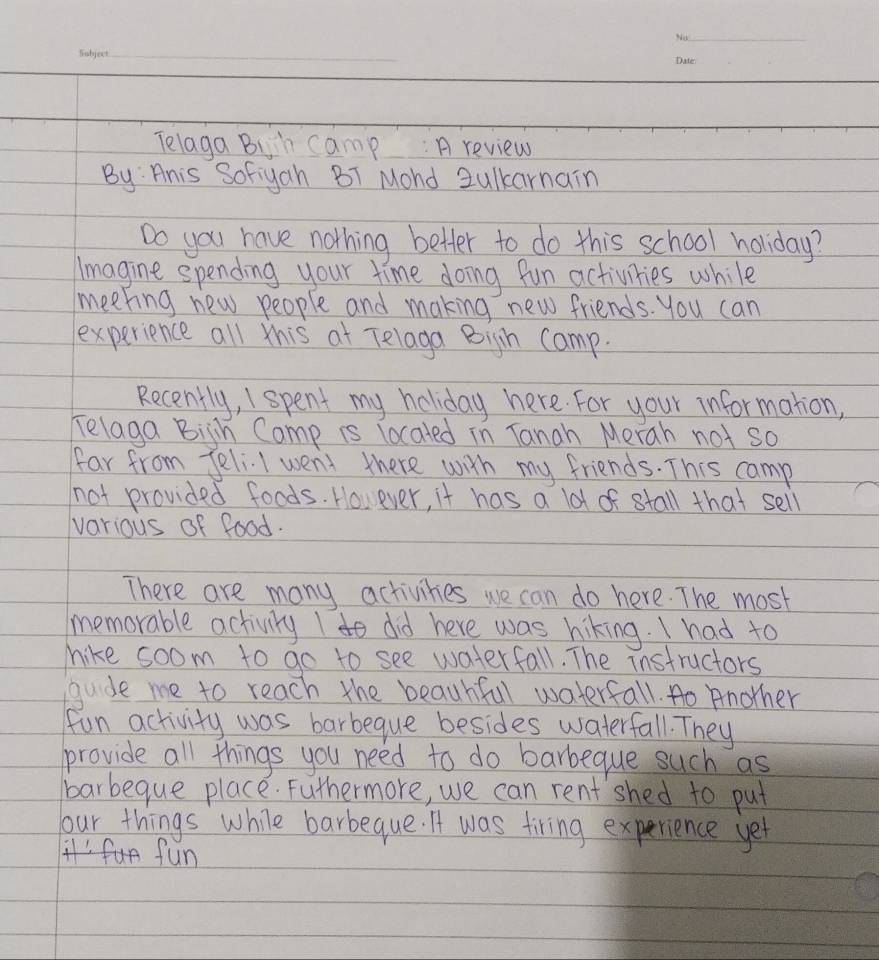 No:
Subject
Date:
Telaga Bijih Camp : A review
By: Anis Sofiyah BT Mohd Zulkarnain
Do you have nothing better to do this school holiday?
Imagine spending your time doing fun activities while
meeting new people and making new friends. You can
experience all this at Telaga Bijih Camp.
Recently, I spent my holiday here. For your information,
Telaga Bijih Camp is located in Tanah Merah not so
far from Jeli. I went there with my friends. This camp
not provided foods. However, it has a lot of stall that sell
various of food.
There are many activities we can do here. The most
memorable activity I to did here was hiking. I had to
hike 500m to go to see waterfall. The instructors
guide me to reach the beautiful waterfall. Ao Another
fun activity was barbeque besides waterfall. They
provide all things you need to do barbeque such as
barbeque place. Futhermore, we can rent shed to put
our things while barbeque. It was tiring experience yet
it' fun fun